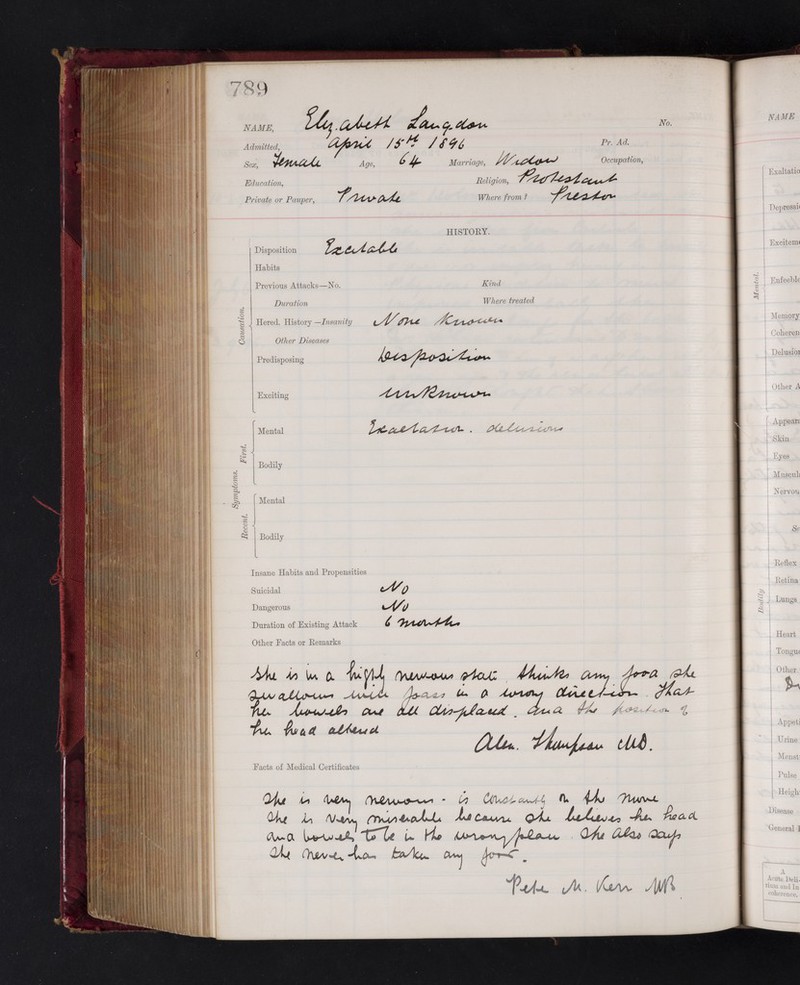 789
NAME, Elizabeth Langdon No.
Admitted, April 15th 1896 Pr. Ad.
Sex, Female Age, 64 Marriage, Widow Occupation,
Education, Religion, Protestant
Private or Pauper, Private Where from? Preston
HISTORY.
Causation.
Disposition Excitable
Habits
Previous Attacks—No. Kind
Duration Where treated
Hered. History—Insanity None Known
Other Diseases
Predisposing Disposition
Exciting unknown
Symptoms.
First.
Mental Exaltation. delusions
Bodily
Recent.
Mental
Bodily
Insane Habits and Propensities
Suicidal No
Dangerous No
Duration of Existing Attack 6 months
Other Facts or Remarks
She is in a highly nervous state thinks any food she
swallows will pass in a wrong direction. That
her bowels are all displaced. and the position of
her head altered
Alex. Thompson MD.
Facts of Medical Certificates
She is very nervous - is constantly on the move
She is very miserable because she believes her head
and bowels to be in the wrong place She also says
she never has taken any food.
Peter M. Kerr MB
NAME
Mental.
Exaltatio
Depressi
Exciteme
Enfeeble
Memory
Coheren
Delusion
Other A
Bodily
Appeara
Skin
Eyes
Muscula
Nervou
Reflex
Retina
Lungs
Heart
Tongue
Other
Appeti
Urine
Menst
Pulse
Heigh
Disease
General
A
Acute Deli-
rium and In
coherence.